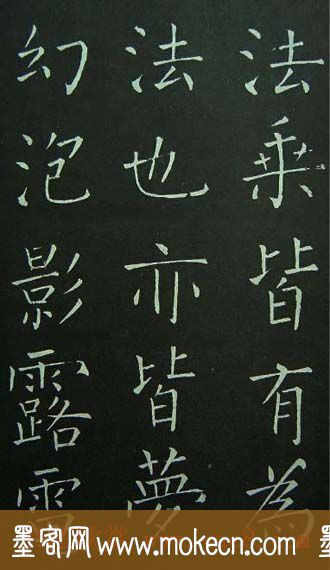 法乗皆有為
法也亦皆夢
幻泡影露電
墨客网 www.mokecn.com